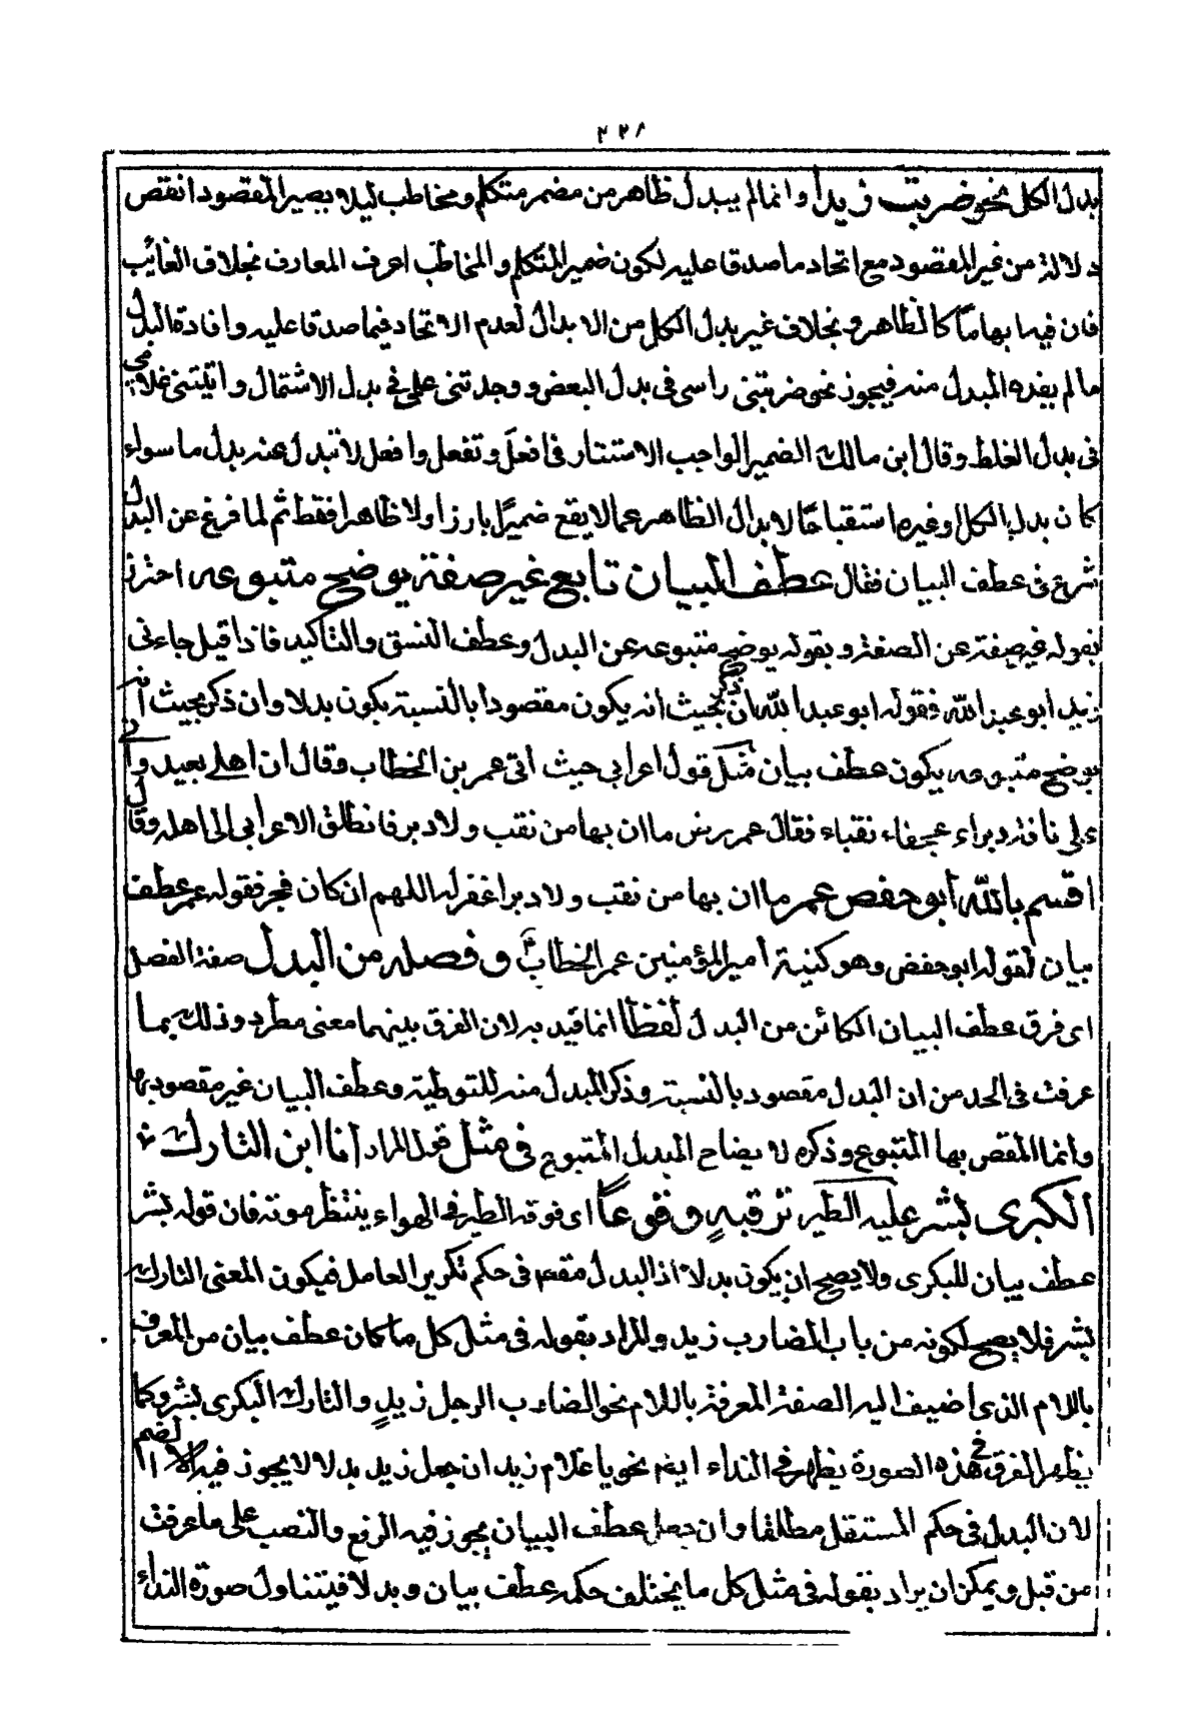 ٢٢٨
بدل الكل نحو ضربت زيدا وانما لم يبدل ظاهر من مضمر متكلم ومخاطب ليلا يصير المقصود انقص
دلالة من غير المقصود مع اتحاد ما صدقا عليه لكون ضمير المتكلم والمخاطب اعرف المعارف بخلاف الغائب
فان فيه ابهاما كالظاهر و بخلاف غير بدل الكل من الابدال لعدم الاتحاد فيما صدقا عليه وافادة البدل
ما لم يفده المبدل منه فيجوز نحو ضربتنى راسى فى بدل البعض ووجدتنى على فى بدل الاشتمال واتيتنى غلامى
فى بدل الغلط وقال ابن مالك الضمير الواجب الاستتار فى افعل وتفعل وافعل لا تبدل عنه بدل ما سواء
كان بدل الكل او غيره استقباحا لابدال الظاهر عما لا يقع ضميرا بارزا ولا ظاهرا فقط ثم لما فرغ عن البدل
شرع فى عطف البيان فقال عطف البيان تابع غير صفة يوضح متبوعه احترز
بقوله غير صفة عن الصفة و بقوله يوضح متبوعه عن البدل وعطف النسق والتاكيد فاذا قيل جاءنى
زيد ابو عبد الله فقوله ابو عبد الله ان ذكر بحيث انه يكون مقصودا بالنسبة يكون بدلا وان ذكر بحيث انه
يوضح متبوعه يكون عطف بيان مثل قول اعرابي حيث اتى عمر بن الخطاب وقال ان اهلى بعيد وانى
على ناقة دبراء عجفاء نقباء فقال عمر رض ما ان بها من نقب ولا دبر فانطلق الاعرابى الى اهله وقال
اقسم بالله ابو حفص عمر ما ان بها من نقب ولا دبر اغفر له اللهم ان كان فجر فقوله عمر عطف
بيان لقوله ابو حفص وهو كنية امير المؤمنين عمر الخطاب و فصله من البدل صفة الفصل
اى فرق عطف البيان الكائن من البدل لفظا انما قيد به لان الفرق بينهما معنى مطرد وذلك بما
عرفت فى الحد من ان البدل مقصود بالنسبة وذكر المبدل منه للتوطية وعطف البيان غير مقصود بها
وانما المقص بها المتبوع وذكره لا يضاح المبدل المتبوع فى مثل قول المراد انا ابن التارك
البكرى بشر عليه الطير ترقبه وقوعا اى فوقه الطير فى الهواء ينتظر موته فان قوله بشر
عطف بيان للبكرى ولا يصح ان يكون بدلا اذ البدل مقم فى حكم تكرير العامل فيكون المعنى التارك
بشر فلا يصح لكونه من باب الضارب زيد والمراد بقوله فى مثل كل ما كان عطف بيان من المعرف
باللام الذى اضيف اليه الصفة المعرفة باللام نحو الضارب الرجل زيد والتارك البكرى بشر وكما
يظهر الفرق فى هذه الصورة يظهر فى النداء ايضم نحو يا غلام زيد ان جعل زيد بدلا لا يجوز فيه الا الضم
لان البدل فى حكم المستقل مطلقا وان جعل عطف البيان يجوز فيه الرفع والنصب على ما عرفت
من قبل ويمكن ان يراد بقوله فى مثل كل ما يختلف حكمه عطف بيان وبدلا فيتناول صورة النداء